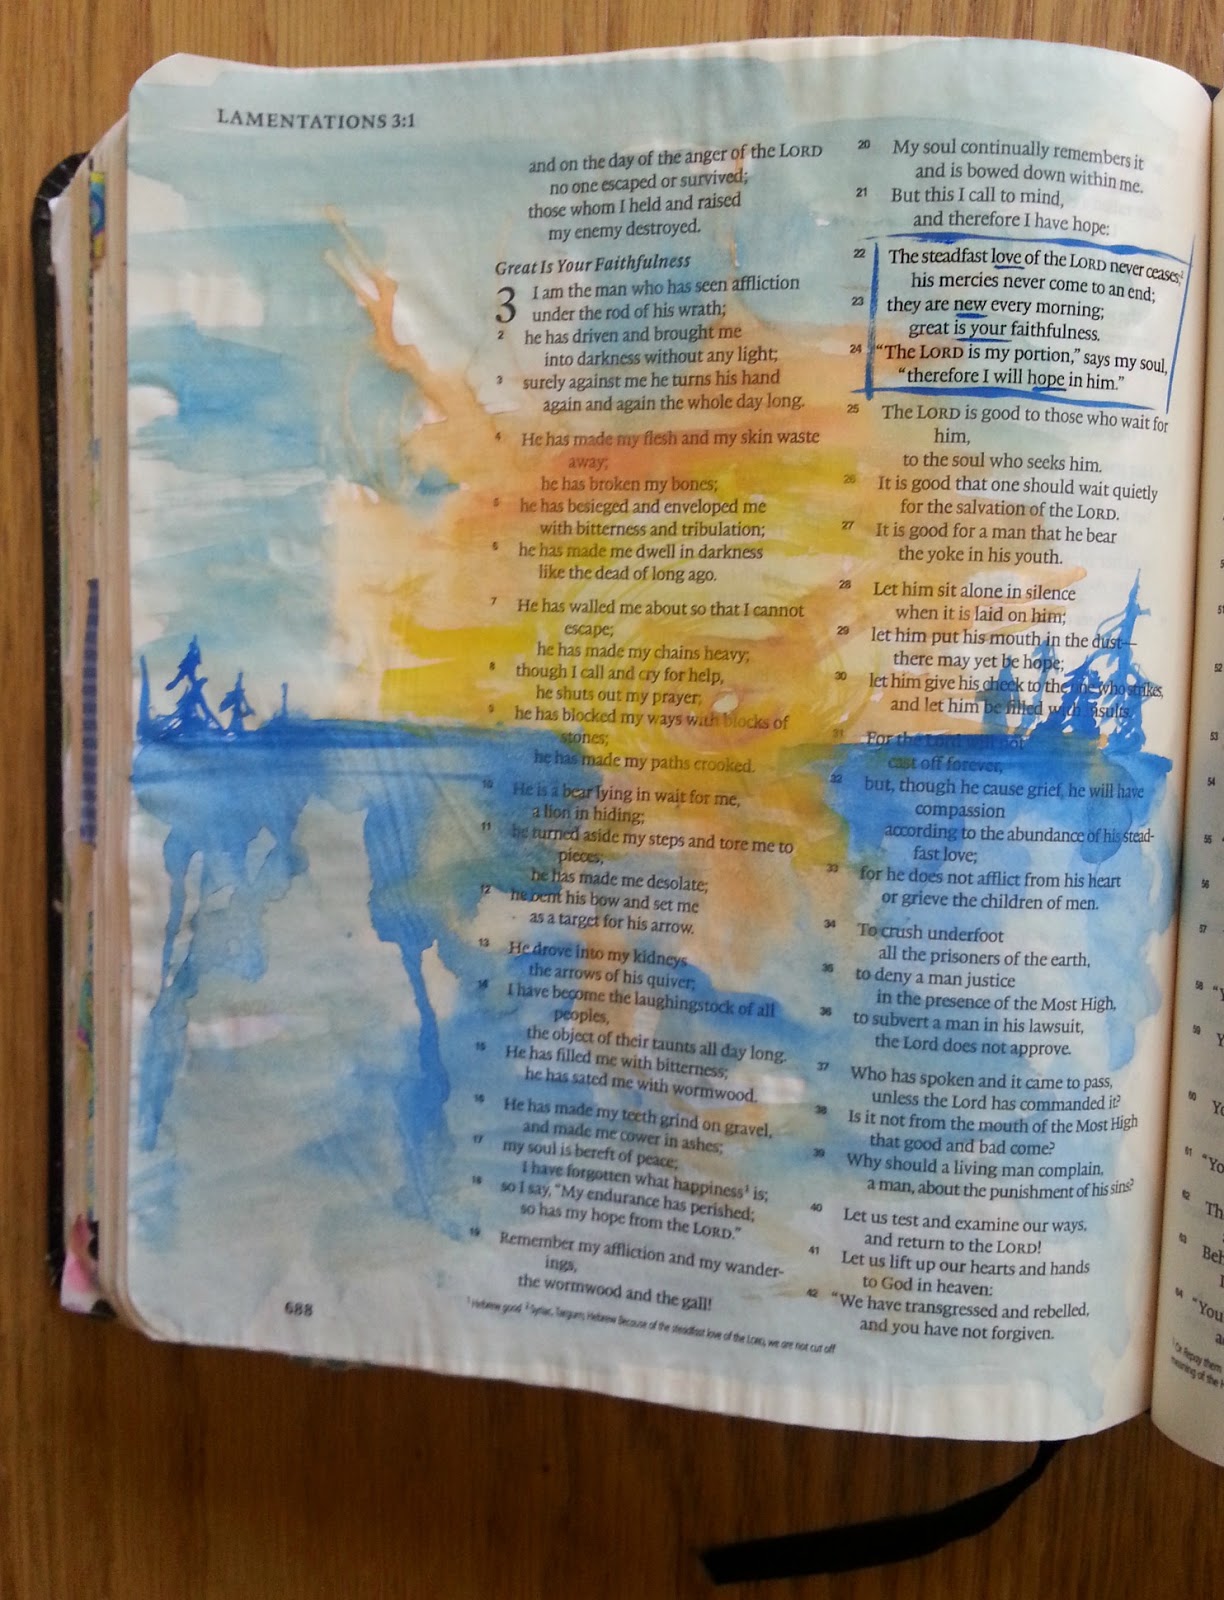 LAMENTATIONS 3:1
and on the day of the anger of the LORD
no one escaped or survived;
those whom I held and raised
my enemy destroyed.
Great Is Your Faithfulness
3 I am the man who has seen affliction
under the rod of his wrath;
2 he has driven and brought me
into darkness without any light;
3 surely against me he turns his hand
again and again the whole day long.
4 He has made my flesh and my skin waste
away;
he has broken my bones;
5 he has besieged and enveloped me
with bitterness and tribulation;
6 he has made me dwell in darkness
like the dead of long ago.
7 He has walled me about so that I cannot
escape;
he has made my chains heavy;
8 though I call and cry for help,
he shuts out my prayer;
9 he has blocked my ways with blocks of
stones;
he has made my paths crooked.
10 He is a bear lying in wait for me,
a lion in hiding;
11 he turned aside my steps and tore me to
pieces;
he has made me desolate;
12 he bent his bow and set me
as a target for his arrow.
13 He drove into my kidneys
the arrows of his quiver;
14 I have become the laughingstock of all
peoples,
the object of their taunts all day long.
15 He has filled me with bitterness;
he has sated me with wormwood.
16 He has made my teeth grind on gravel,
and made me cower in ashes;
17 my soul is bereft of peace;
I have forgotten what happiness¹ is;
18 so I say, “My endurance has perished;
so has my hope from the LORD.”
19 Remember my affliction and my wander-
ings,
the wormwood and the gall!
20 My soul continually remembers it
and is bowed down within me.
21 But this I call to mind,
and therefore I have hope:
22 The steadfast love of the LORD never ceases;²
his mercies never come to an end;
23 they are new every morning;
great is your faithfulness.
24 “The LORD is my portion,” says my soul,
“therefore I will hope in him.”
25 The LORD is good to those who wait for
him,
to the soul who seeks him.
26 It is good that one should wait quietly
for the salvation of the LORD.
27 It is good for a man that he bear
the yoke in his youth.
28 Let him sit alone in silence
when it is laid on him;
29 let him put his mouth in the dust—
there may yet be hope;
30 let him give his cheek to the one who strikes,
and let him be filled with insults.
31 For the Lord will not
cast off forever,
32 but, though he cause grief, he will have
compassion
according to the abundance of his stead-
fast love;
33 for he does not afflict from his heart
or grieve the children of men.
34 To crush underfoot
all the prisoners of the earth,
35 to deny a man justice
in the presence of the Most High,
36 to subvert a man in his lawsuit,
the Lord does not approve.
37 Who has spoken and it came to pass,
unless the Lord has commanded it?
38 Is it not from the mouth of the Most High
that good and bad come?
39 Why should a living man complain,
a man, about the punishment of his sins?
40 Let us test and examine our ways,
and return to the LORD!
41 Let us lift up our hearts and hands
to God in heaven:
42 “We have transgressed and rebelled,
and you have not forgiven.
688
¹ Hebrew good ² Syriac, Targum; Hebrew Because of the steadfast love of the LORD, we are not cut off
51
52
53
54
55
56
57
58 “Y
59 Y
60 Yo
61 “Yo
62 Th
63 Beh
64 “You
¹ Or Repay them
meaning of the H